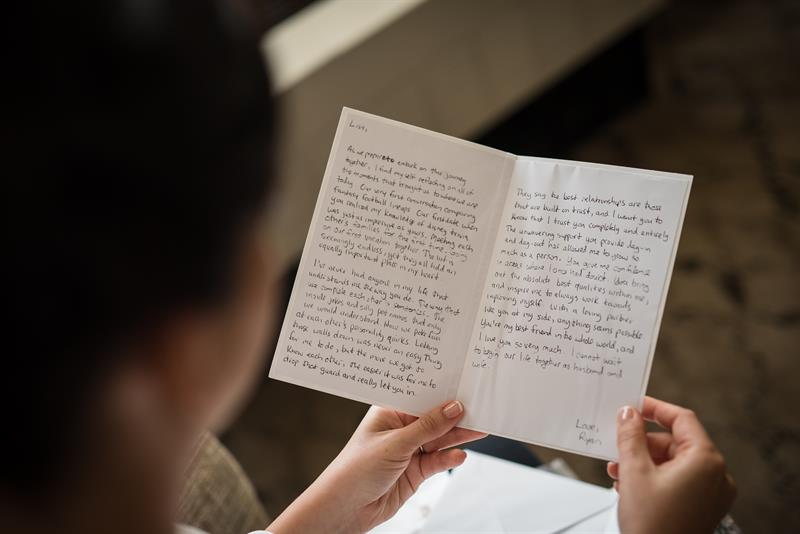 As we prepare to embark on this journey
together, I find myself reflecting on all of
the moments that brought us to where we are
today. Our very first conversation comparing
fantasy football lineups. Our first date when
you realized my knowledge of disney trivia
was just as impressive as yours. Meeting each
other's families for the first time. Going
on our first vacation together. The list is
seemingly endless, yet they all hold an
equally important place in my heart.
I've never had anyone in my life that
understands me the way you do. The way that
we complete each other's sentences. The
inside jokes and silly pet names that only
we would understand. How we poke fun
at each other's personality quirks. Letting
those walls down was never an easy thing
for me to do, but the more we got to
know each other, the easier it was for me to
drop that guard and really let you in.
They say the best relationships are those
that are built on trust, and I want you to
know that I trust you completely and entirely
The unwavering support you provide day-in
and day-out has allowed me to grow so
much as a person. You give me confidence
in areas where I once had doubt. You bring
out the absolute best qualities within me,
and inspire me to always work towards
improving myself. With a loving partner
like you at my side, anything seems possible
You're my best friend in the whole world, and
I love you so very much. I cannot wait
to begin our life together as husband and
wife.
Love,
Ryan